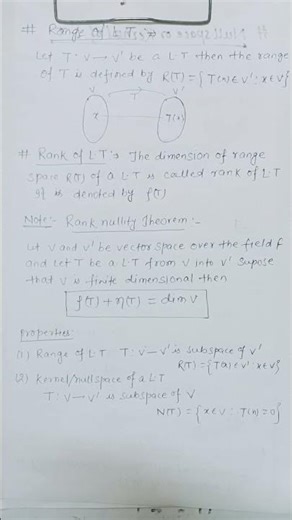 # Range of L.T :-
Let T : V → V' be a L.T then the range
of T is defined by R(T) = { T(x) ∈ V' : x ∈ V }
V T V'
x T(x)
# Rank of L.T :- The dimension of range
space R(T) of a L.T is called rank of L.T
It is denoted by ρ(T)
Note :- Rank nullity Theorem :-
Let V and V' be vector space over the field F
and let T be a L.T from V into V' Supose
that V is finite dimensional then
ρ(T) + η(T) = dim V
properties :
(1) Range of L.T T : V → V' is subspace of V'
R(T) = { T(x) ∈ V' : x ∈ V }
(2) Kernel/nullspace of a L.T
T : V → V' is subspace of V
N(T) = { x ∈ V : T(x) = 0 }